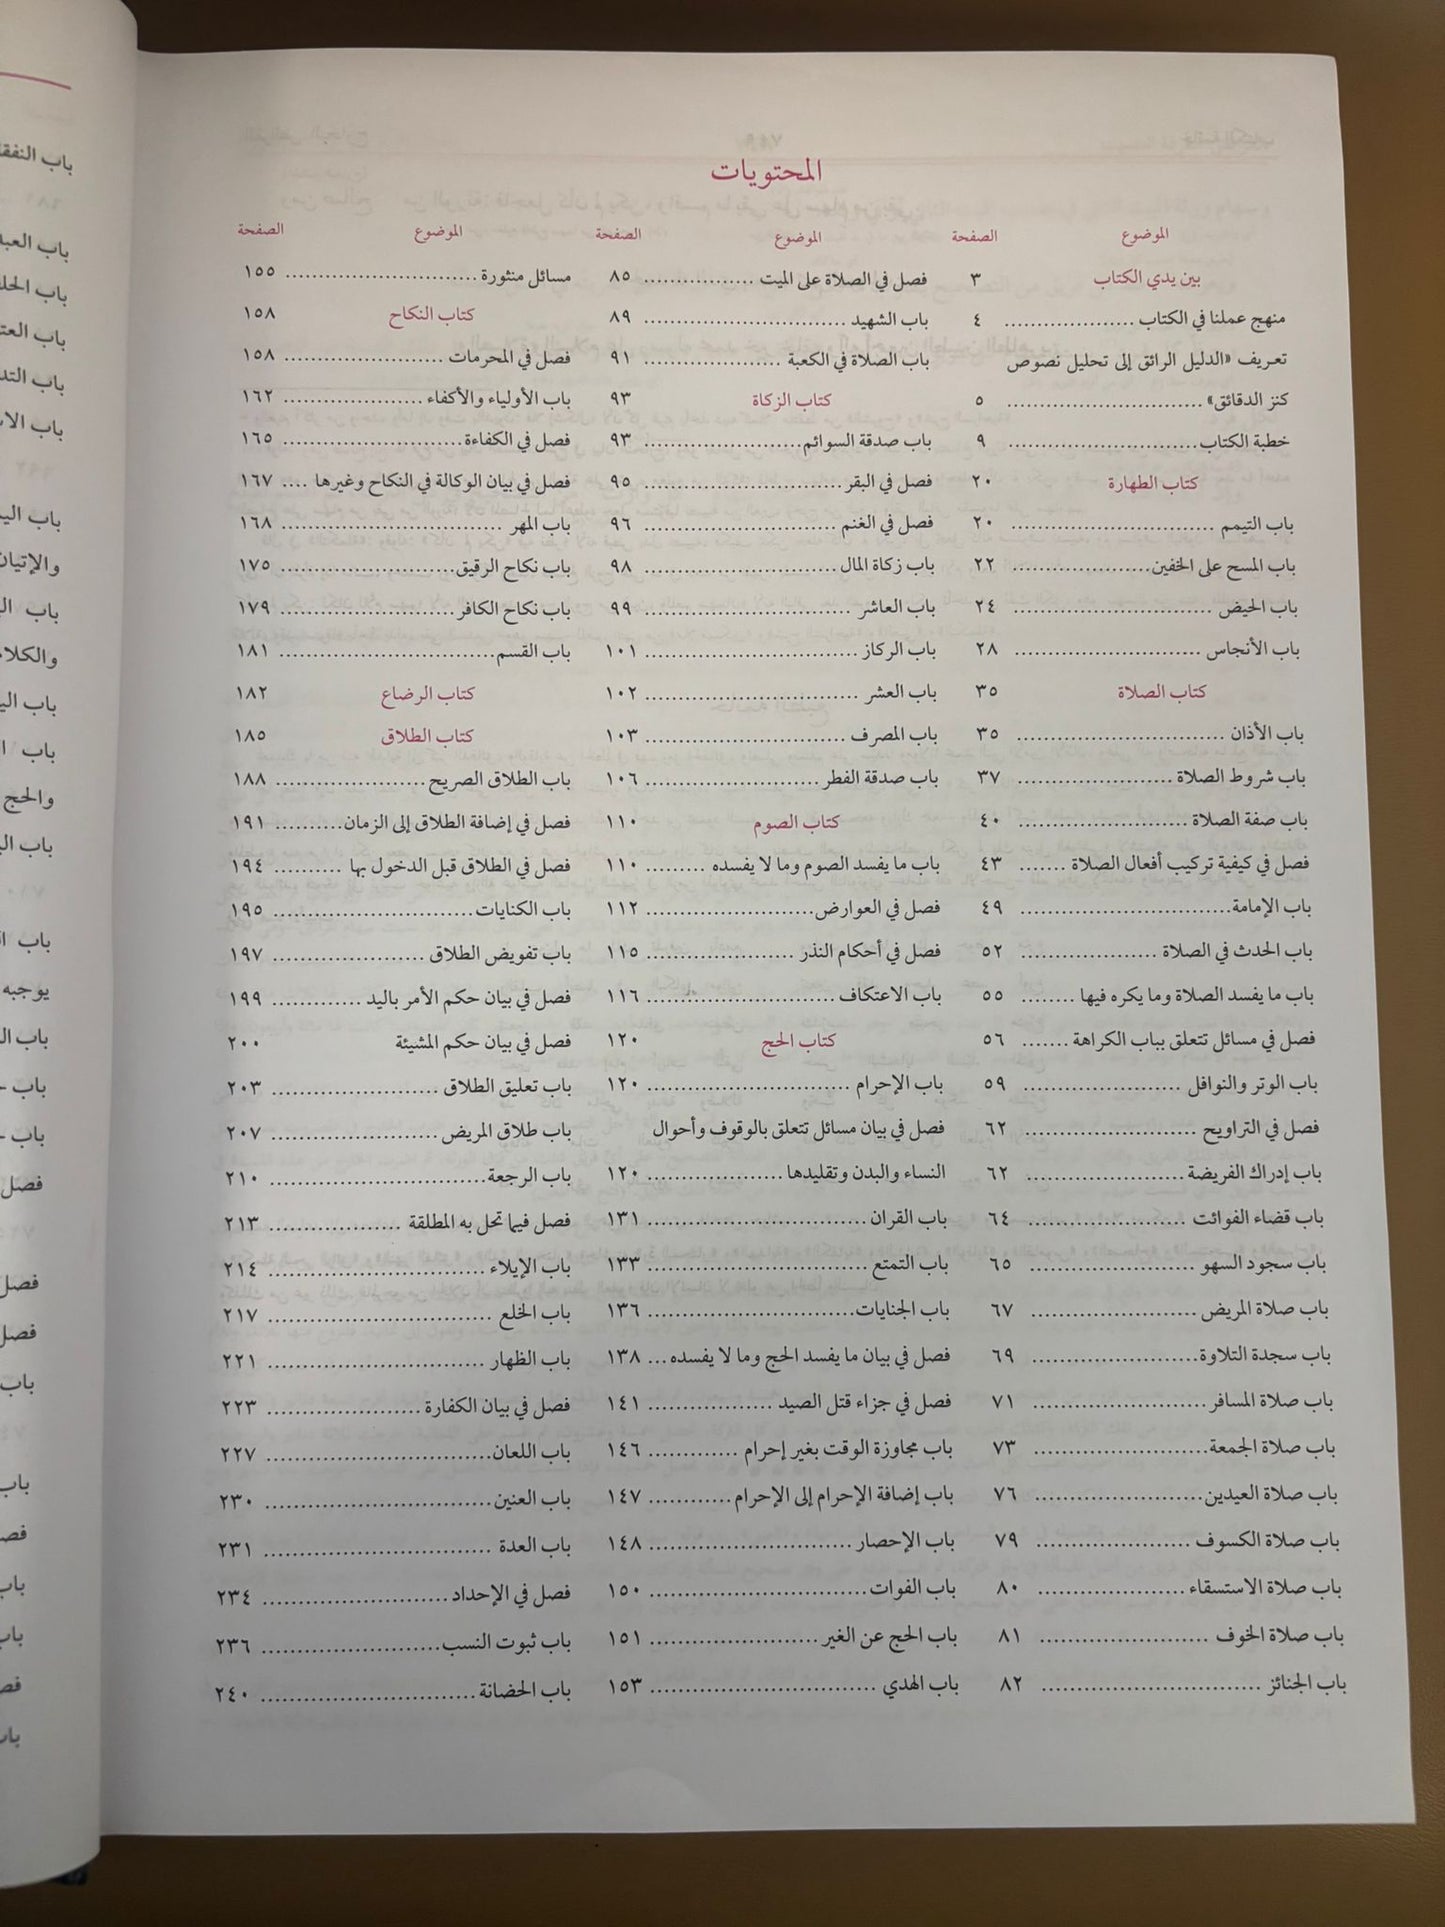 المحتويات
الموضوع الصفحة
بين يدي الكتاب ٣
منهج عملنا في الكتاب .................... ٤
تعريف «الدليل الرائق إلى تحليل نصوص
كنز الدقائق» .............................. ٥
خطبة الكتاب ............................. ٩
كتاب الطهارة ٢٠
باب التيمم ............................... ٢٠
باب المسح على الخفين ..................... ٢٢
باب الحيض .............................. ٢٤
باب الأنجاس ............................ ٢٨
كتاب الصلاة ٣٥
باب الأذان ............................... ٣٥
باب شروط الصلاة ....................... ٣٧
باب صفة الصلاة ......................... ٤٠
فصل في كيفية تركيب أفعال الصلاة ....... ٤٣
باب الإمامة ............................... ٤٩
باب الحدث في الصلاة .................... ٥٢
باب ما يفسد الصلاة وما يكره فيها ........ ٥٥
فصل في مسائل تتعلق بباب الكراهة ....... ٥٦
باب الوتر والنوافل ....................... ٥٩
فصل في التراويح ......................... ٦٢
باب إدراك الفريضة ....................... ٦٢
باب قضاء الفوائت ....................... ٦٤
باب سجود السهو ........................ ٦٥
باب صلاة المريض ........................ ٦٧
باب سجدة التلاوة ........................ ٦٩
باب صلاة المسافر ......................... ٧١
باب صلاة الجمعة ......................... ٧٣
باب صلاة العيدين ........................ ٧٦
باب صلاة الكسوف ...................... ٧٩
باب صلاة الاستسقاء ..................... ٨٠
باب صلاة الخوف ........................ ٨١
باب الجنائز ............................... ٨٢
الموضوع الصفحة
فصل في الصلاة على الميت ................. ٨٥
باب الشهيد .............................. ٨٩
باب الصلاة في الكعبة .................... ٩١
كتاب الزكاة ٩٣
باب صدقة السوائم ....................... ٩٣
فصل في البقر ............................. ٩٥
فصل في الغنم ............................ ٩٦
باب زكاة المال ............................ ٩٨
باب العاشر .............................. ٩٩
باب الركاز ............................... ١٠١
باب العشر ............................... ١٠٢
باب المصرف ............................. ١٠٣
باب صدقة الفطر ......................... ١٠٦
كتاب الصوم ١١٠
باب ما يفسد الصوم وما لا يفسده ......... ١١٠
فصل في العوارض ........................ ١١٢
فصل في أحكام النذر ..................... ١١٥
باب الاعتكاف .......................... ١١٦
كتاب الحج ١٢٠
باب الإحرام ............................. ١٢٠
فصل في بيان مسائل تتعلق بالوقوف وأحوال
النساء والبدن وتقليدها .................... ١٢٠
باب القران ............................... ١٣١
باب التمتع ............................... ١٣٣
باب الجنايات ............................. ١٣٦
فصل في بيان ما يفسد الحج وما لا يفسده ... ١٣٨
فصل في جزاء قتل الصيد .................. ١٤١
باب مجاوزة الوقت بغير إحرام ............. ١٤٦
باب إضافة الإحرام إلى الإحرام ............ ١٤٧
باب الإحصار ............................ ١٤٨
باب الفوات .............................. ١٥٠
باب الحج عن الغير ....................... ١٥١
باب الهدي ............................... ١٥٣
الموضوع الصفحة
مسائل منثورة ............................ ١٥٥
كتاب النكاح ١٥٨
فصل في المحرمات ....................... ١٥٨
باب الأولياء والأكفاء .................... ١٦٢
فصل في الكفاءة .......................... ١٦٥
فصل في بيان الوكالة في النكاح وغيرها .... ١٦٧
باب المهر ................................ ١٦٨
باب نكاح الرقيق ......................... ١٧٥
باب نكاح الكافر ......................... ١٧٩
باب القسم ............................... ١٨١
كتاب الرضاع ١٨٢
كتاب الطلاق ١٨٥
باب الطلاق الصريح ...................... ١٨٨
فصل في إضافة الطلاق إلى الزمان .......... ١٩١
فصل في الطلاق قبل الدخول بها .......... ١٩٤
باب الكنايات ............................ ١٩٥
باب تفويض الطلاق ...................... ١٩٧
فصل في بيان حكم الأمر باليد ............. ١٩٩
فصل في بيان حكم المشيئة ٢٠٠
باب تعليق الطلاق ........................ ٢٠٣
باب طلاق المريض ........................ ٢٠٧
باب الرجعة .............................. ٢١٠
فصل فيما تحل به المطلقة ................... ٢١٣
باب الإيلاء .............................. ٢١٤
باب الخلع ................................ ٢١٧
باب الظهار ............................... ٢٢١
فصل في بيان الكفارة ...................... ٢٢٣
باب اللعان ............................... ٢٢٧
باب العنين ............................... ٢٣٠
باب العدة ................................ ٢٣١
فصل في الإحداد .......................... ٢٣٤
باب ثبوت النسب ......................... ٢٣٦
باب الحضانة ............................. ٢٤٠
باب
باب
باب
باب
باب
باب
باب
والإتيان
باب
باب
باب
والحج
باب
باب
يوجبه
باب
باب
باب
فصل
فصل
فصل
باب
باب
باب
باب
باب